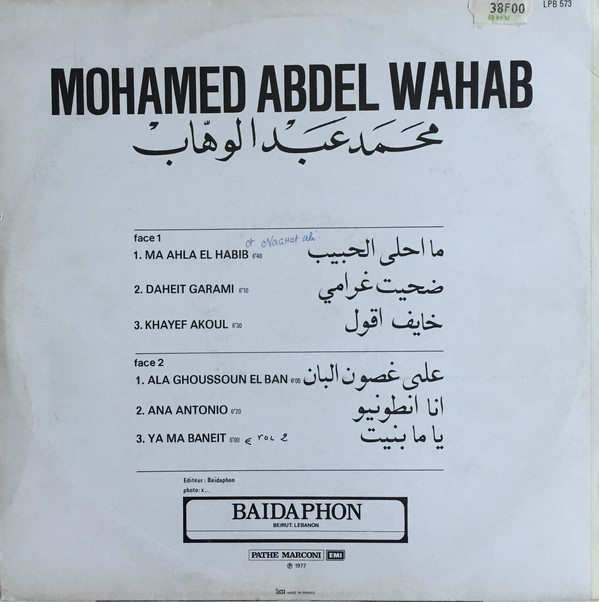 38F00
BHV
LPB 573
MOHAMED ABDEL WAHAB
محمد عبد الوهاب
face 1
et Naghat ali
1. MA AHLA EL HABIB 6'40 ما احلى الحبيب
2. DAHEIT GARAMI 6'10 ضحيت غرامي
3. KHAYEF AKOUL 6'30 خايف اقول
face 2
1. ALA GHOUSSOUN EL BAN 6'05 على غصون البان
2. ANA ANTONIO 6'20 انا انطونيو
3. YA MA BANEIT 6'00 € VOL 2 يا ما بنيت
Editeur : Baidaphon
photo : x ...
BAIDAPHON
BEIRUT. LEBANON
PATHE MARCONI EMI
℗ 1977
MADE IN FRANCE